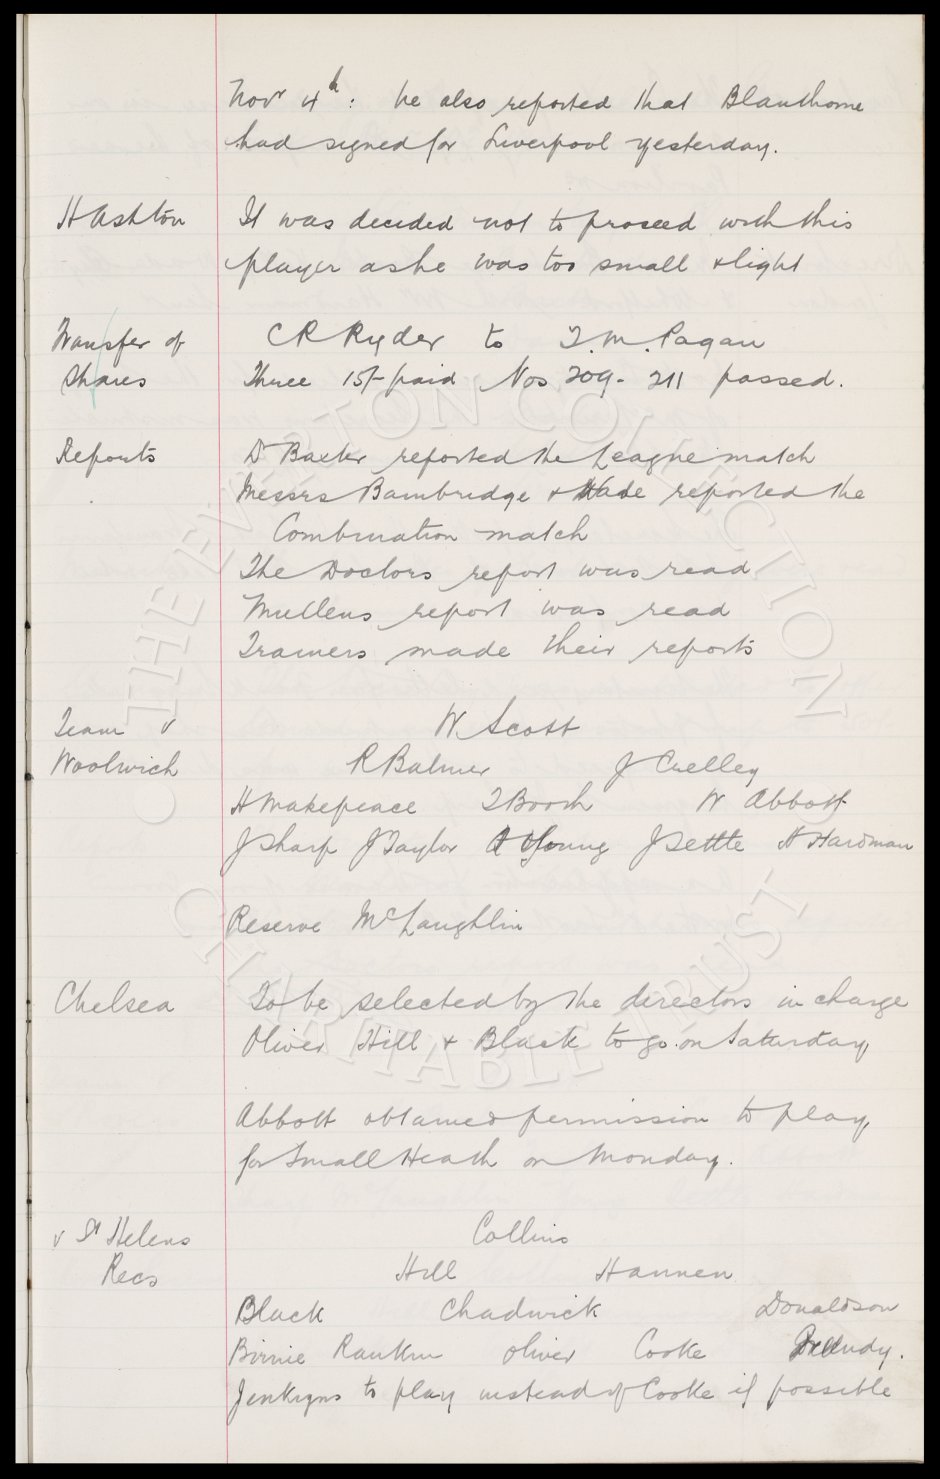 Novr 4th: he also reported that Blanthorne
had signed for Liverpool yesterday.
H Ashton It was decided not to proceed with this
player as he was too small & light
Transfer of C R Ryder to T. M. Pagan
Shares Three 15/- paid Nos 209 - 211 passed.
Reports Dr Baxter reported the League match
Messrs Bainbridge & Wade reported the
Combination match
The Doctors report was read
Mullens report was read
Trainers made their reports
Team v W Scott
Woolwich R Balmer J Crelley
H Makepeace T Booth W Abbott
J Sharp J Taylor A Young J Settle H Hardman
Reserve McLaughlin
Chelsea To be selected by the directors in charge
Oliver Hill & Black to go on Saturday
Abbott obtained permission to play
for Small Heath on Monday.
v St Helens Collins
Recs Hill Hannen
Black Chadwick Donaldson
Birnie Rankin Oliver Cooke
Jenkyns to play instead of Cooke if possible
THE EVERTON COLLECTION
CHARITABLE TRUST